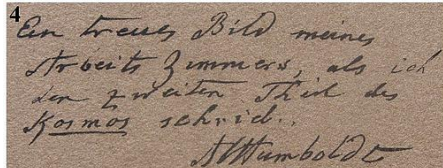 4
Ein treues Bild meines
Arbeits Zimmers, als ich
den zweiten Theil des
Kosmos schrieb.
AvHumboldt